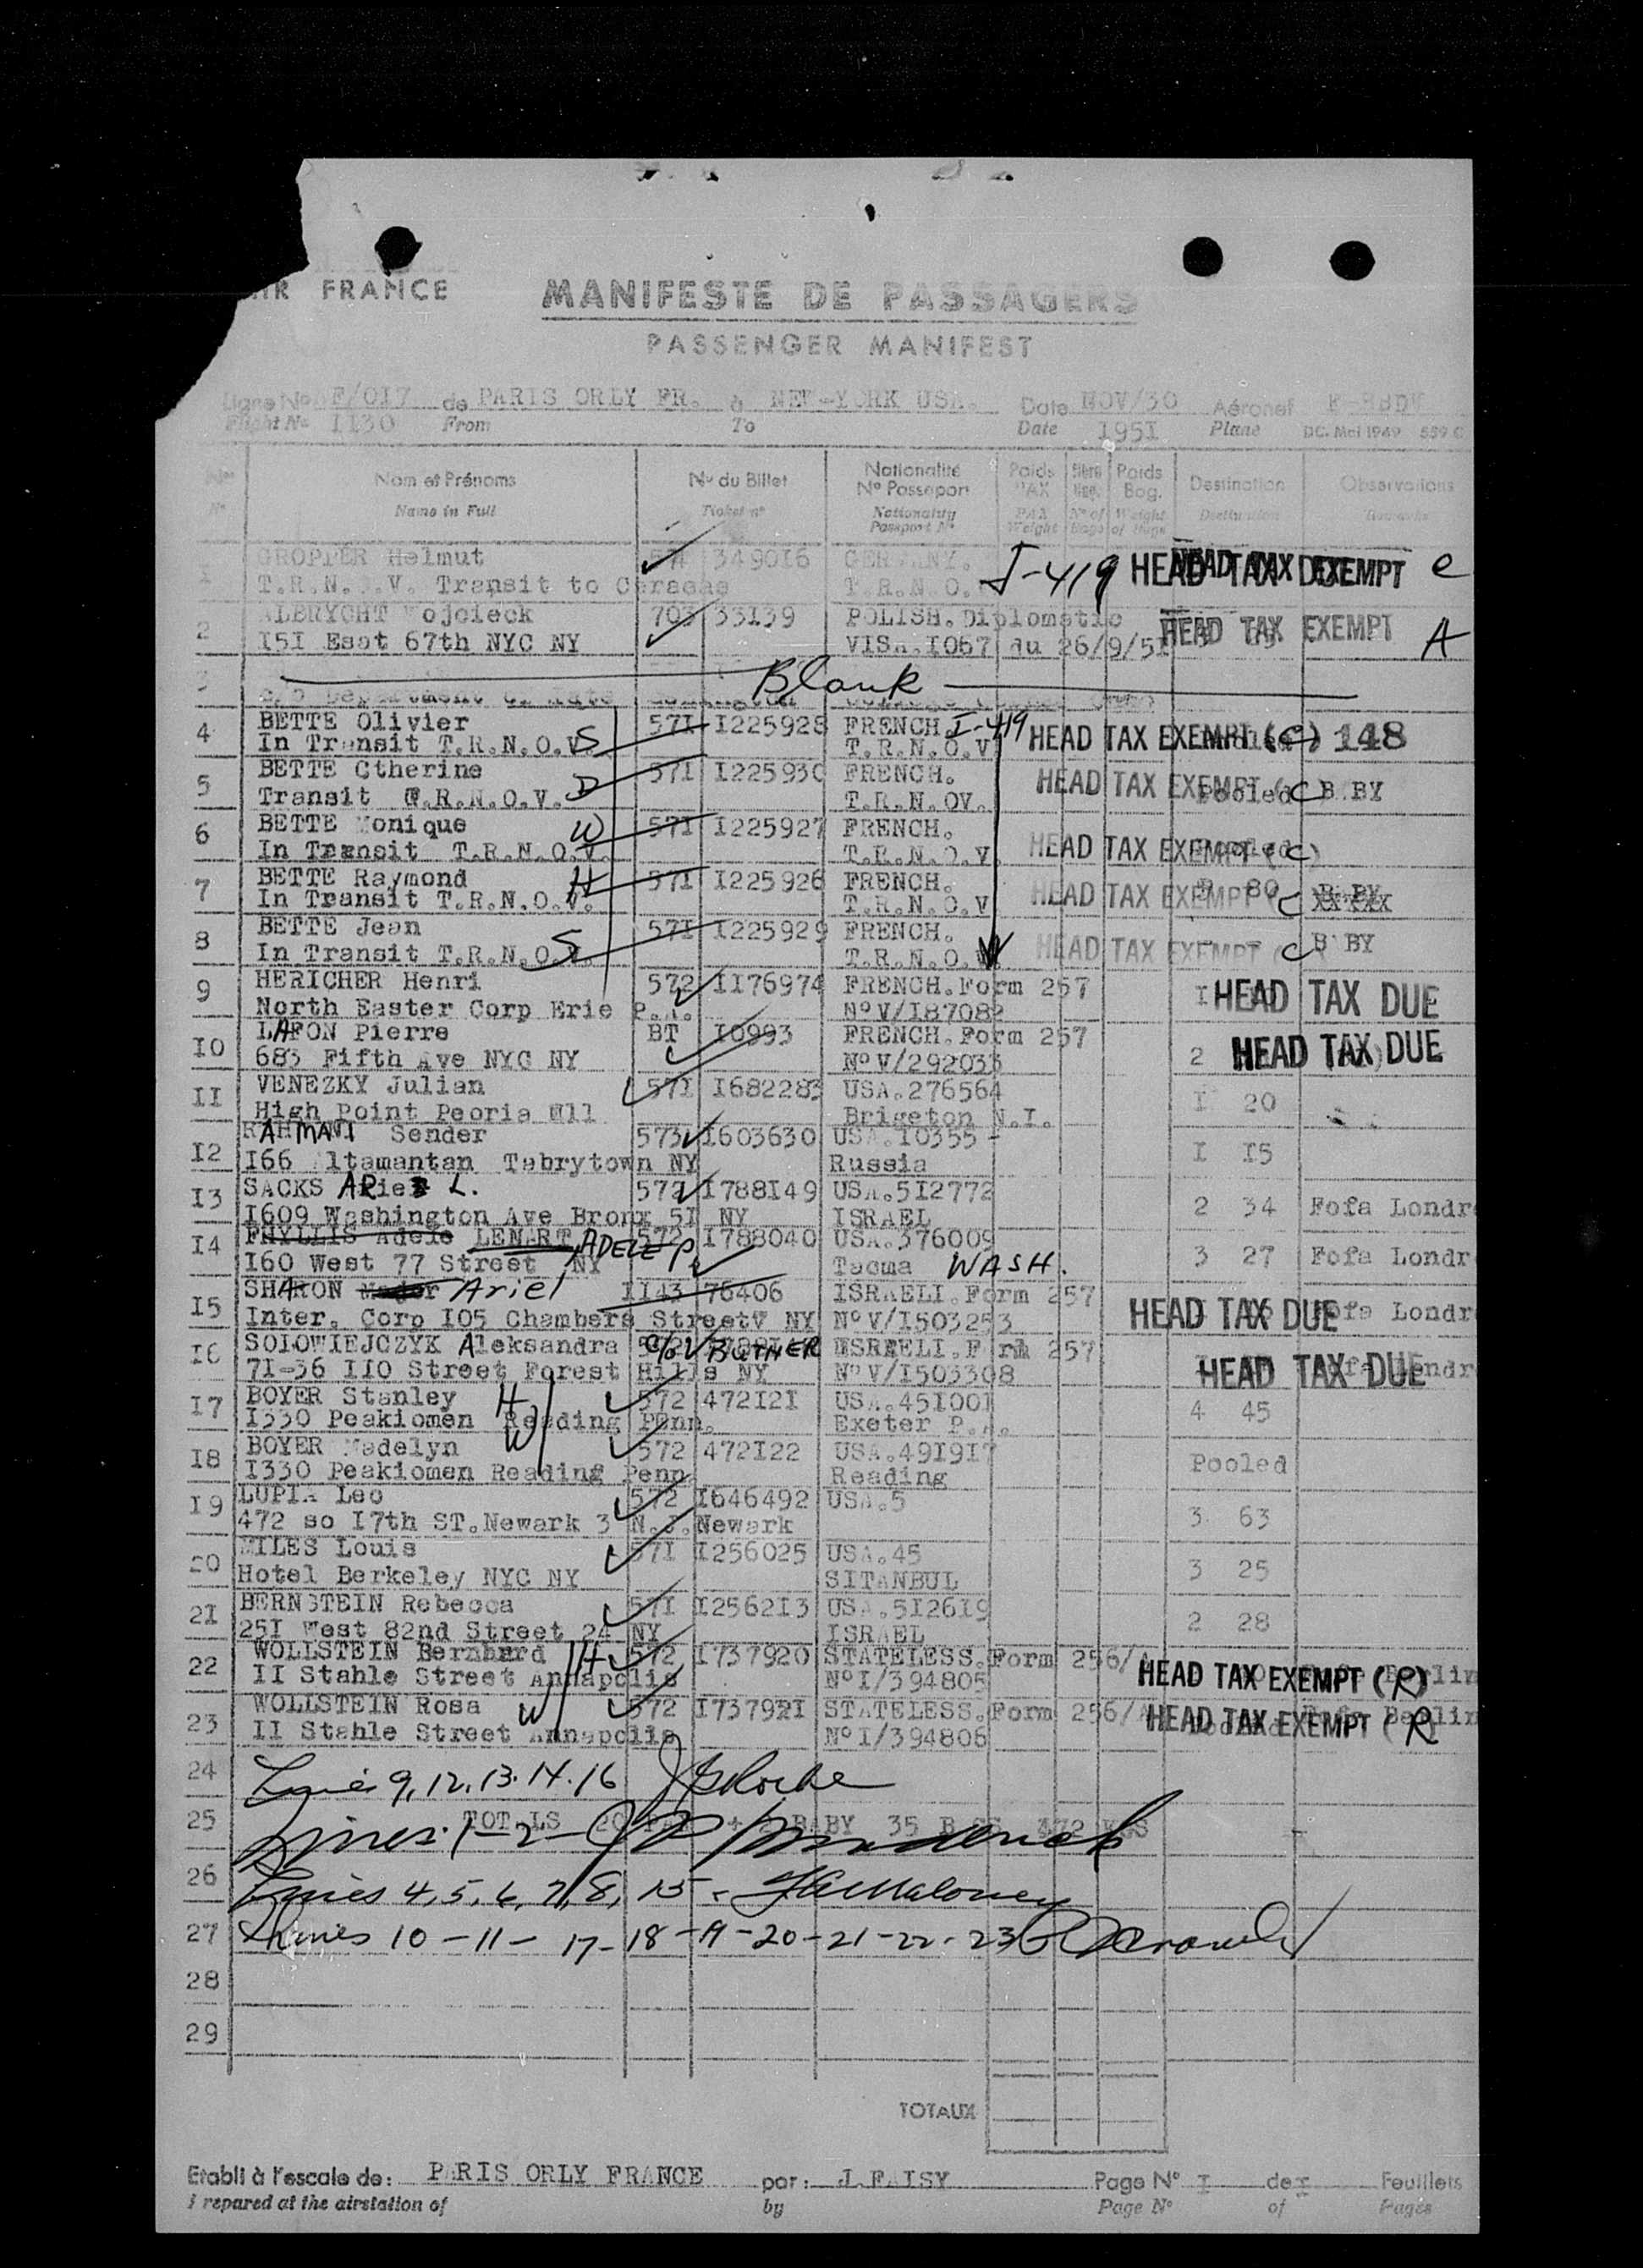 AIR FRANCE
MANIFESTE DE PASSAGERS
PASSENGER MANIFEST
Ligne No AF/017 de PARIS ORLY FR. à NEW-YORK USA Date NOV/30 Aéronef
Flight No 1130 From To Date 195I Plane DC. Mai 1949 559 C
Nos Nom et Prénoms No du Billet Nationalité No Passeport Poids PAX Poids Bag. Destination Observations
No Name in Full Ticket no Nationality Passport No PAX Weight No of Bags Weight of Bags Destination Remarks
1 GROPPER Helmut 349016 GERMANY. HEAD TAX EXEMPT C
T.R.N.O.V. Transit to Caracas T.R.N.O. I-419
2 ALBRYCHT Wojcieck 703 33139 POLISH. Diplomatic HEAD TAX EXEMPT A
I5I Esat 67th NYC NY VISA.I067 du 26/9/5I
3 Blank
4 BETTE Olivier 57I I225928 FRENCH. I-419 HEAD TAX EXEMPT (C) 148
In Transit T.R.N.O.V. S T.R.N.O.V
5 BETTE Ctherine 57I I22593C FRENCH. HEAD TAX EXEMPT C B BY
Transit T.R.N.O.V. D T.R.N.OV. Pooled
6 BETTE Monique W 57I I225927 FRENCH. HEAD TAX EXEMPT (C)
In Transit T.R.N.O.V. T.R.N.O.V
7 BETTE Raymond H 57I I225926 FRENCH. HEAD TAX EXEMPT C
In Transit T.R.N.O.V. T.R.N.O.V
8 BETTE Jean 57I I225929 FRENCH. HEAD TAX EXEMPT C B BY
In Transit T.R.N.O.V. S T.R.N.O.V
9 HERICHER Henri 572 II76974 FRENCH. Form 257 HEAD TAX DUE
North Easter Corp Erie P.A. No V/I87082
I0 LAFON Pierre BT I0993 FRENCH. Form 257 2 HEAD TAX DUE
683 Fifth Ave NYC NY No V/292035
II VENEZKY Julian 57I I682283 USA.276564 I 20
High Point Peoria Ill Brigeton N.I.
I2 RAHMANI Sender 573 I603630 USA.I0355 I I5
I66 Altamantan Tabrytown NY Russia
I3 SACKS ARiel L. 572 I788I49 USA.5I2772 2 34 Fofa Londr
I609 Washington Ave Bronx 5I NY ISRAEL
I4 PHYLLIS Adele LENART, ADELE P. 572 I788040 USA.376009 3 27 Fofa Londr
I60 West 77 Street NY Tacma WASH.
I5 SHARON Ariel II43 76406 ISRAELI. Form 257 HEAD TAX DUE Fofa Londr
Inter. Corp I05 Chambers Street NY No V/I503253
I6 SOLOWIEJCZYK Aleksandra c/o BUTNER ISRAELI. Form 257 HEAD TAX DUE
7I-36 II0 Street Forest Hills NY No V/I503308
I7 BOYER Stanley H 572 472I2I USA.45I00I 4 45
I330 Peakiomen Reading Penn. Exeter P.A.
I8 BOYER Madelyn W 572 472I22 USA.49I9I7 Pooled
I330 Peakiomen Reading Penn Reading
I9 LUPIA Leo 572 I646492 USA.5 3 63
472 so I7th ST.Newark 3 N.J. Newark
20 MILES Louis 57I I256025 USA.45 3 25
Hotel Berkeley NYC NY SITANBUL
2I BERNSTEIN Rebecca 57I I2562I3 USA.5I26I9 2 28
25I West 82nd Street 24 NY ISRAEL
22 WOLLSTEIN Bernhard H 572 I737920 STATELESS. Form 256/ HEAD TAX EXEMPT (R)
II Stahle Street Annapolis No I/394805
23 WOLLSTEIN Rosa W 572 I73792I STATELESS. Form 256/ HEAD TAX EXEMPT (R)
II Stahle Street Annapolis No I/394806
24 Lines 9, 12, 13. 14. 16
25 TOTALS 20 PAX + BABY 35 BAGS 472 KGS
Lines 1-2-
26 Lines 4, 5, 6, 7, 8, 15. Maloney
27 Lines 10-11-17-18-19-20-21-22-23
28
29
TOTAUX
Etabli à l'escale de: PARIS ORLY FRANCE par: J.FAISY Page No I de I Feuillets
Prepared at the airstation of by Page No of Pages